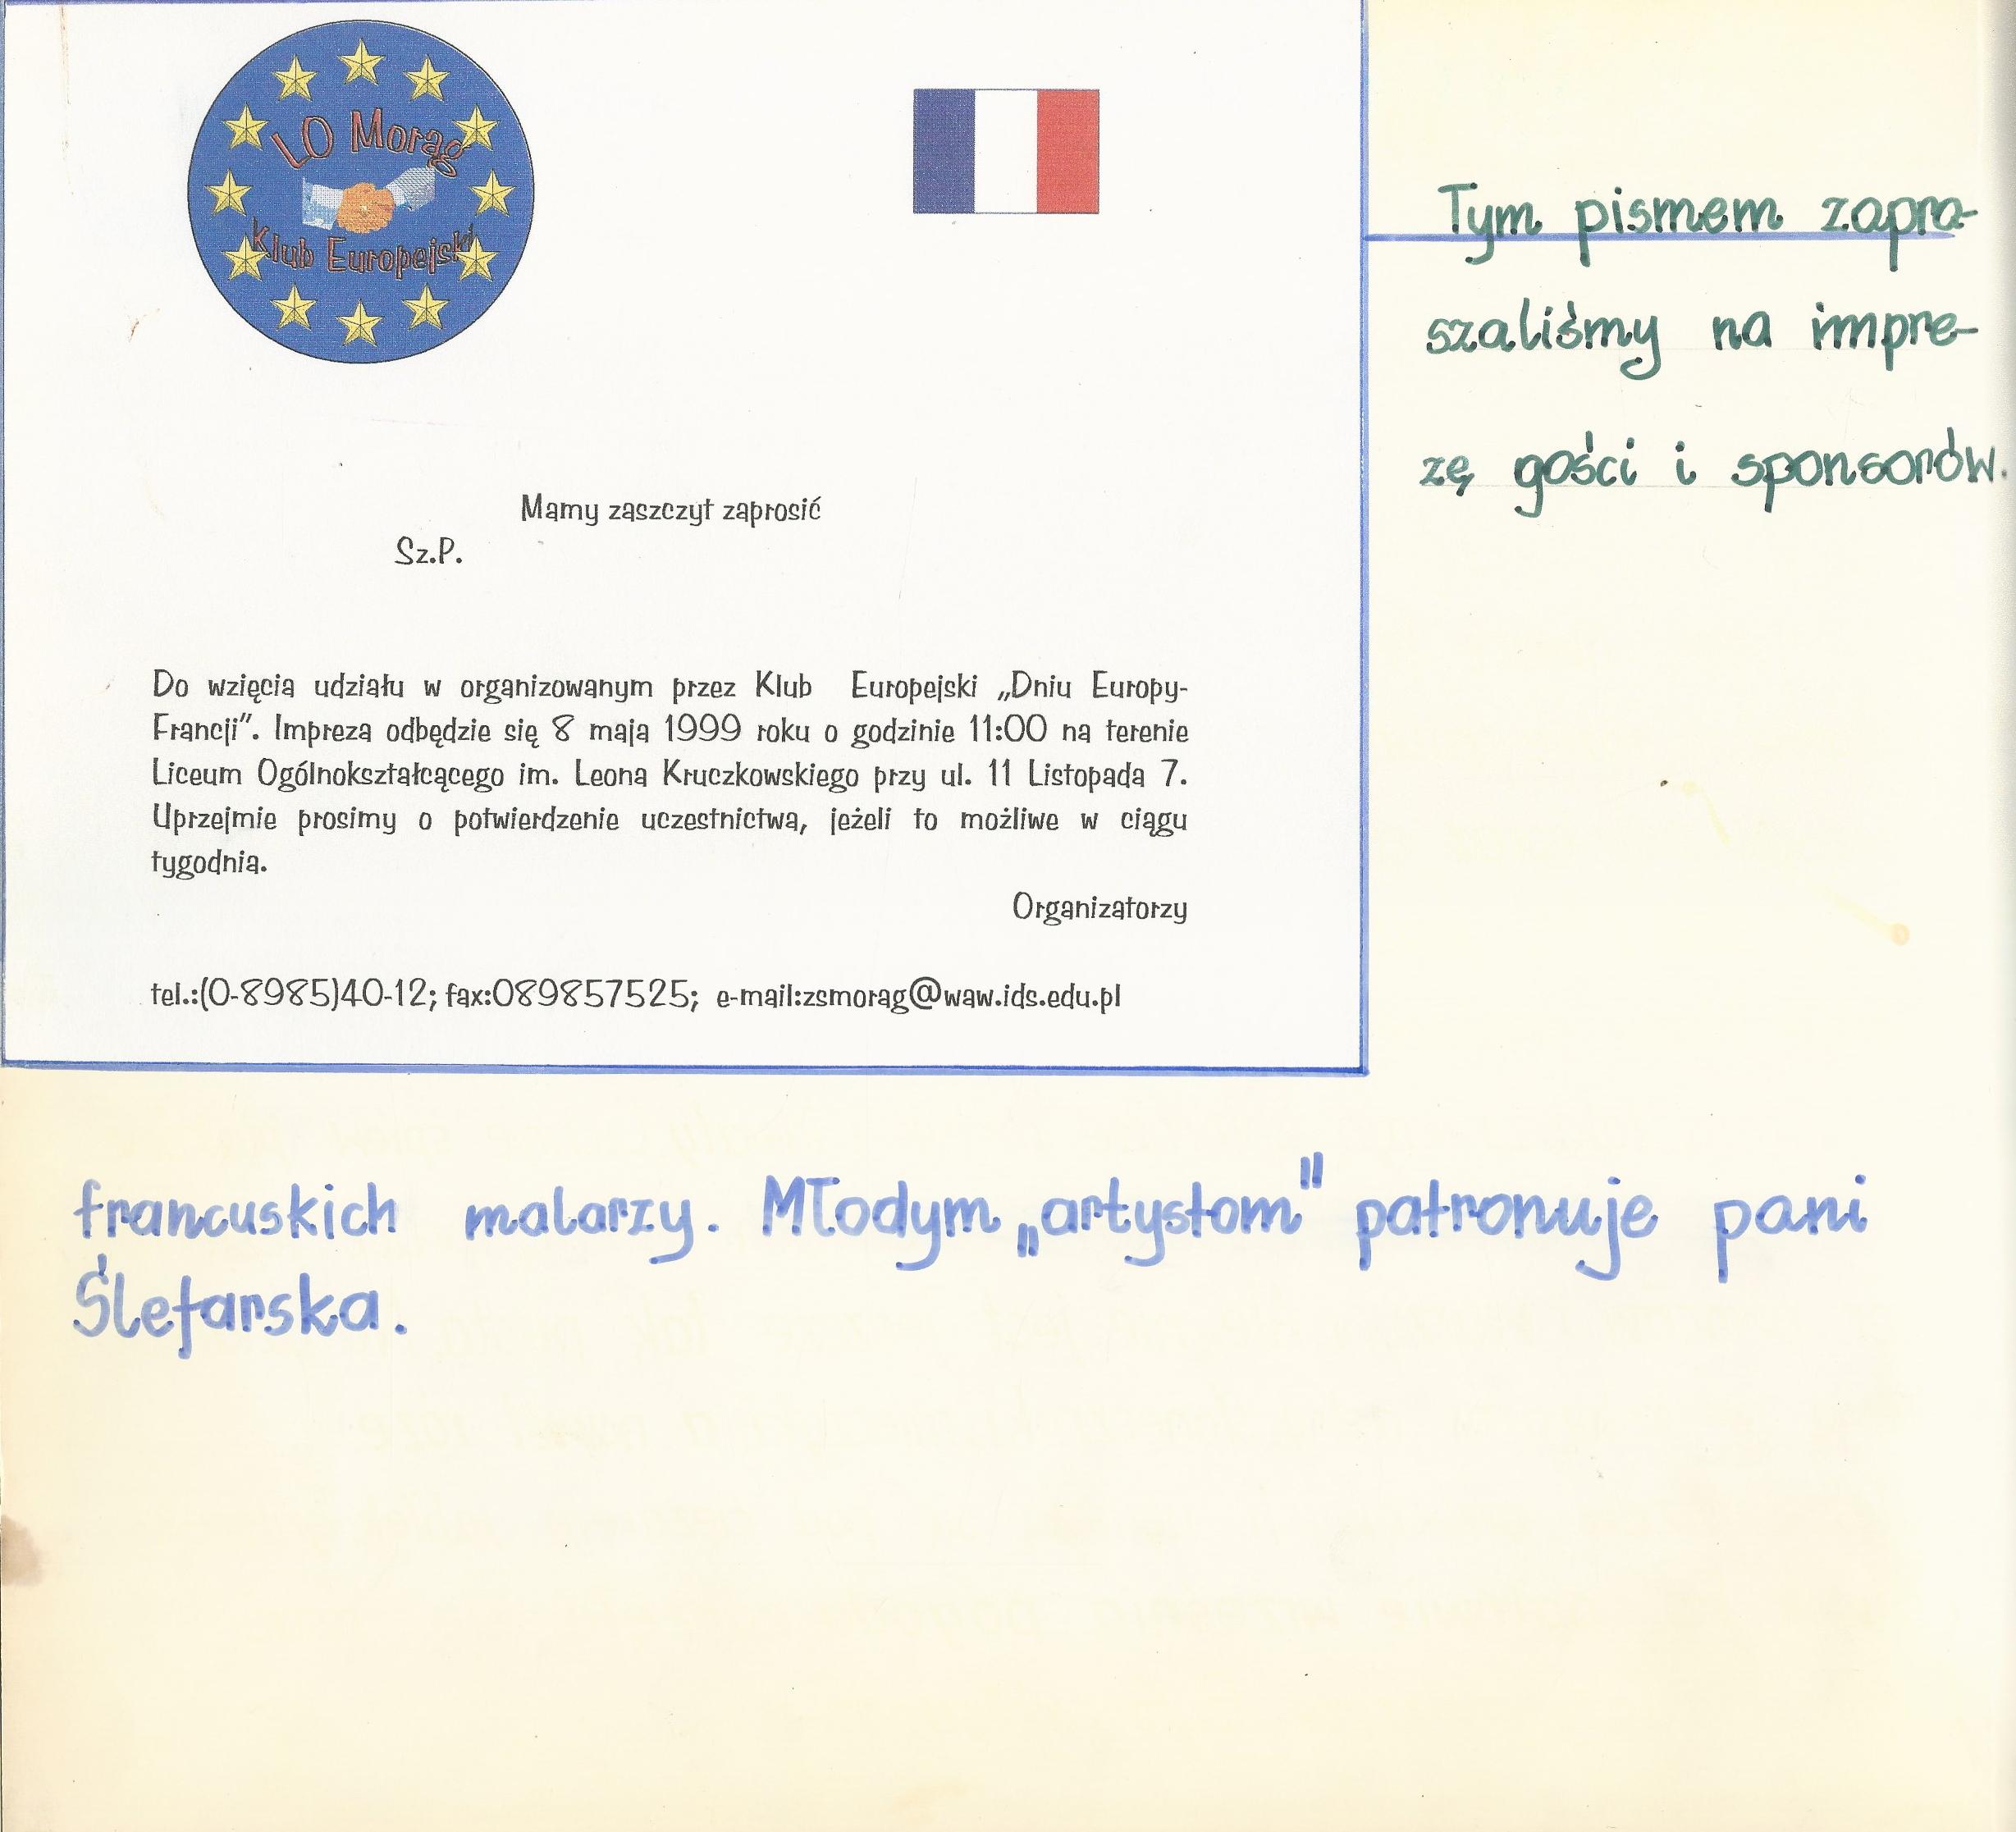 LO Morąg
Klub Europejski
Mamy zaszczyt zaprosić
Sz.P.
Do wzięcia udziału w organizowanym przez Klub Europejski „Dniu Europy-
Francji”. Impreza odbędzie się 8 maja 1999 roku o godzinie 11:00 na terenie
Liceum Ogólnokształcącego im. Leona Kruczkowskiego przy ul. 11 Listopada 7.
Uprzejmie prosimy o potwierdzenie uczestnictwa, jeżeli to możliwe w ciągu
tygodnia.
Organizatorzy
tel.:(0-8985)40-12; fax:089857525; e-mail:zsmorag@waw.ids.edu.pl
Tym pismem zapra-
szaliśmy na impre-
zę gości i sponsorów.
francuskich malarzy. Młodym „artystom" patronuje pani
Ślefarska.